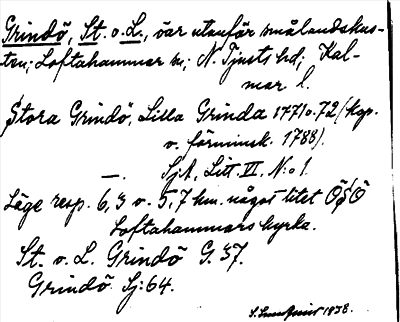 Grindö, St. o. L., öar utanför smålandskus-
ten; Loftahammar sn; N. Tjusts hd; Kal-
mar l.
Stora Grindö, Lilla Grinda 1771 o. 72 (kop.
o. förminsk. 1788).
—. SjA, Litt. VI, N:o 1.
Läge resp. 6,3 o. 5,7 km. något litet ÖSÖ
Loftahammars kyrka.
St. o. L. Grindö G. 37.
Grindö Sj: 64.
1938.